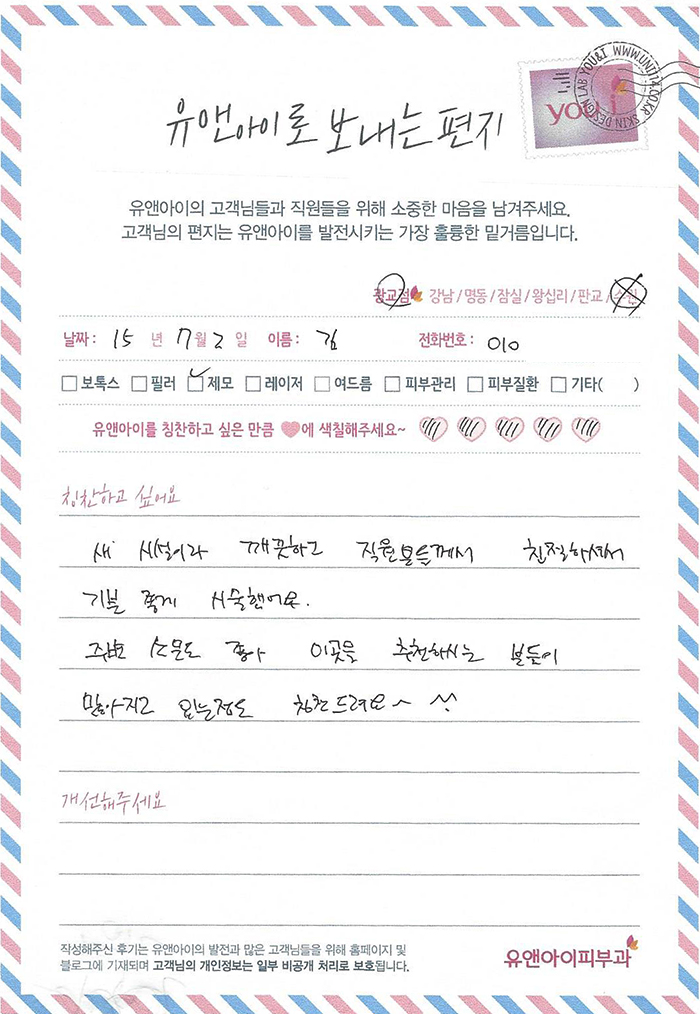 YOU&I WWW.UNI114.CO.KR SKIN DESIGN LAB
you&i
유앤아이로 보내는 편지
유앤아이의 고객님들과 직원들을 위해 소중한 마음을 남겨주세요.
고객님의 편지는 유앤아이를 발전시키는 가장 훌륭한 밑거름입니다.
광교점 강남/명동/잠실/왕십리/판교/수원
날짜: 15 년 7월 2 일 이름: 김 전화번호: 010
보톡스 필러 제모 레이저 여드름 피부관리 피부질환 기타( )
유앤아이를 칭찬하고 싶은 만큼 에 색칠해주세요~
칭찬하고 싶어요
새 시설이라 깨끗하고 직원분들께서 친절하셔서
기분 좋게 시술했어요.
주변 소문도 좋아 이곳을 추천하시는 분들이
많아지고 있는정도 칭찬드려요~ ^^
개선해주세요
작성해주신 후기는 유앤아이의 발전과 많은 고객님들을 위해 홈페이지 및
블로그에 기재되며 고객님의 개인정보는 일부 비공개 처리로 보호됩니다.
유앤아이피부과